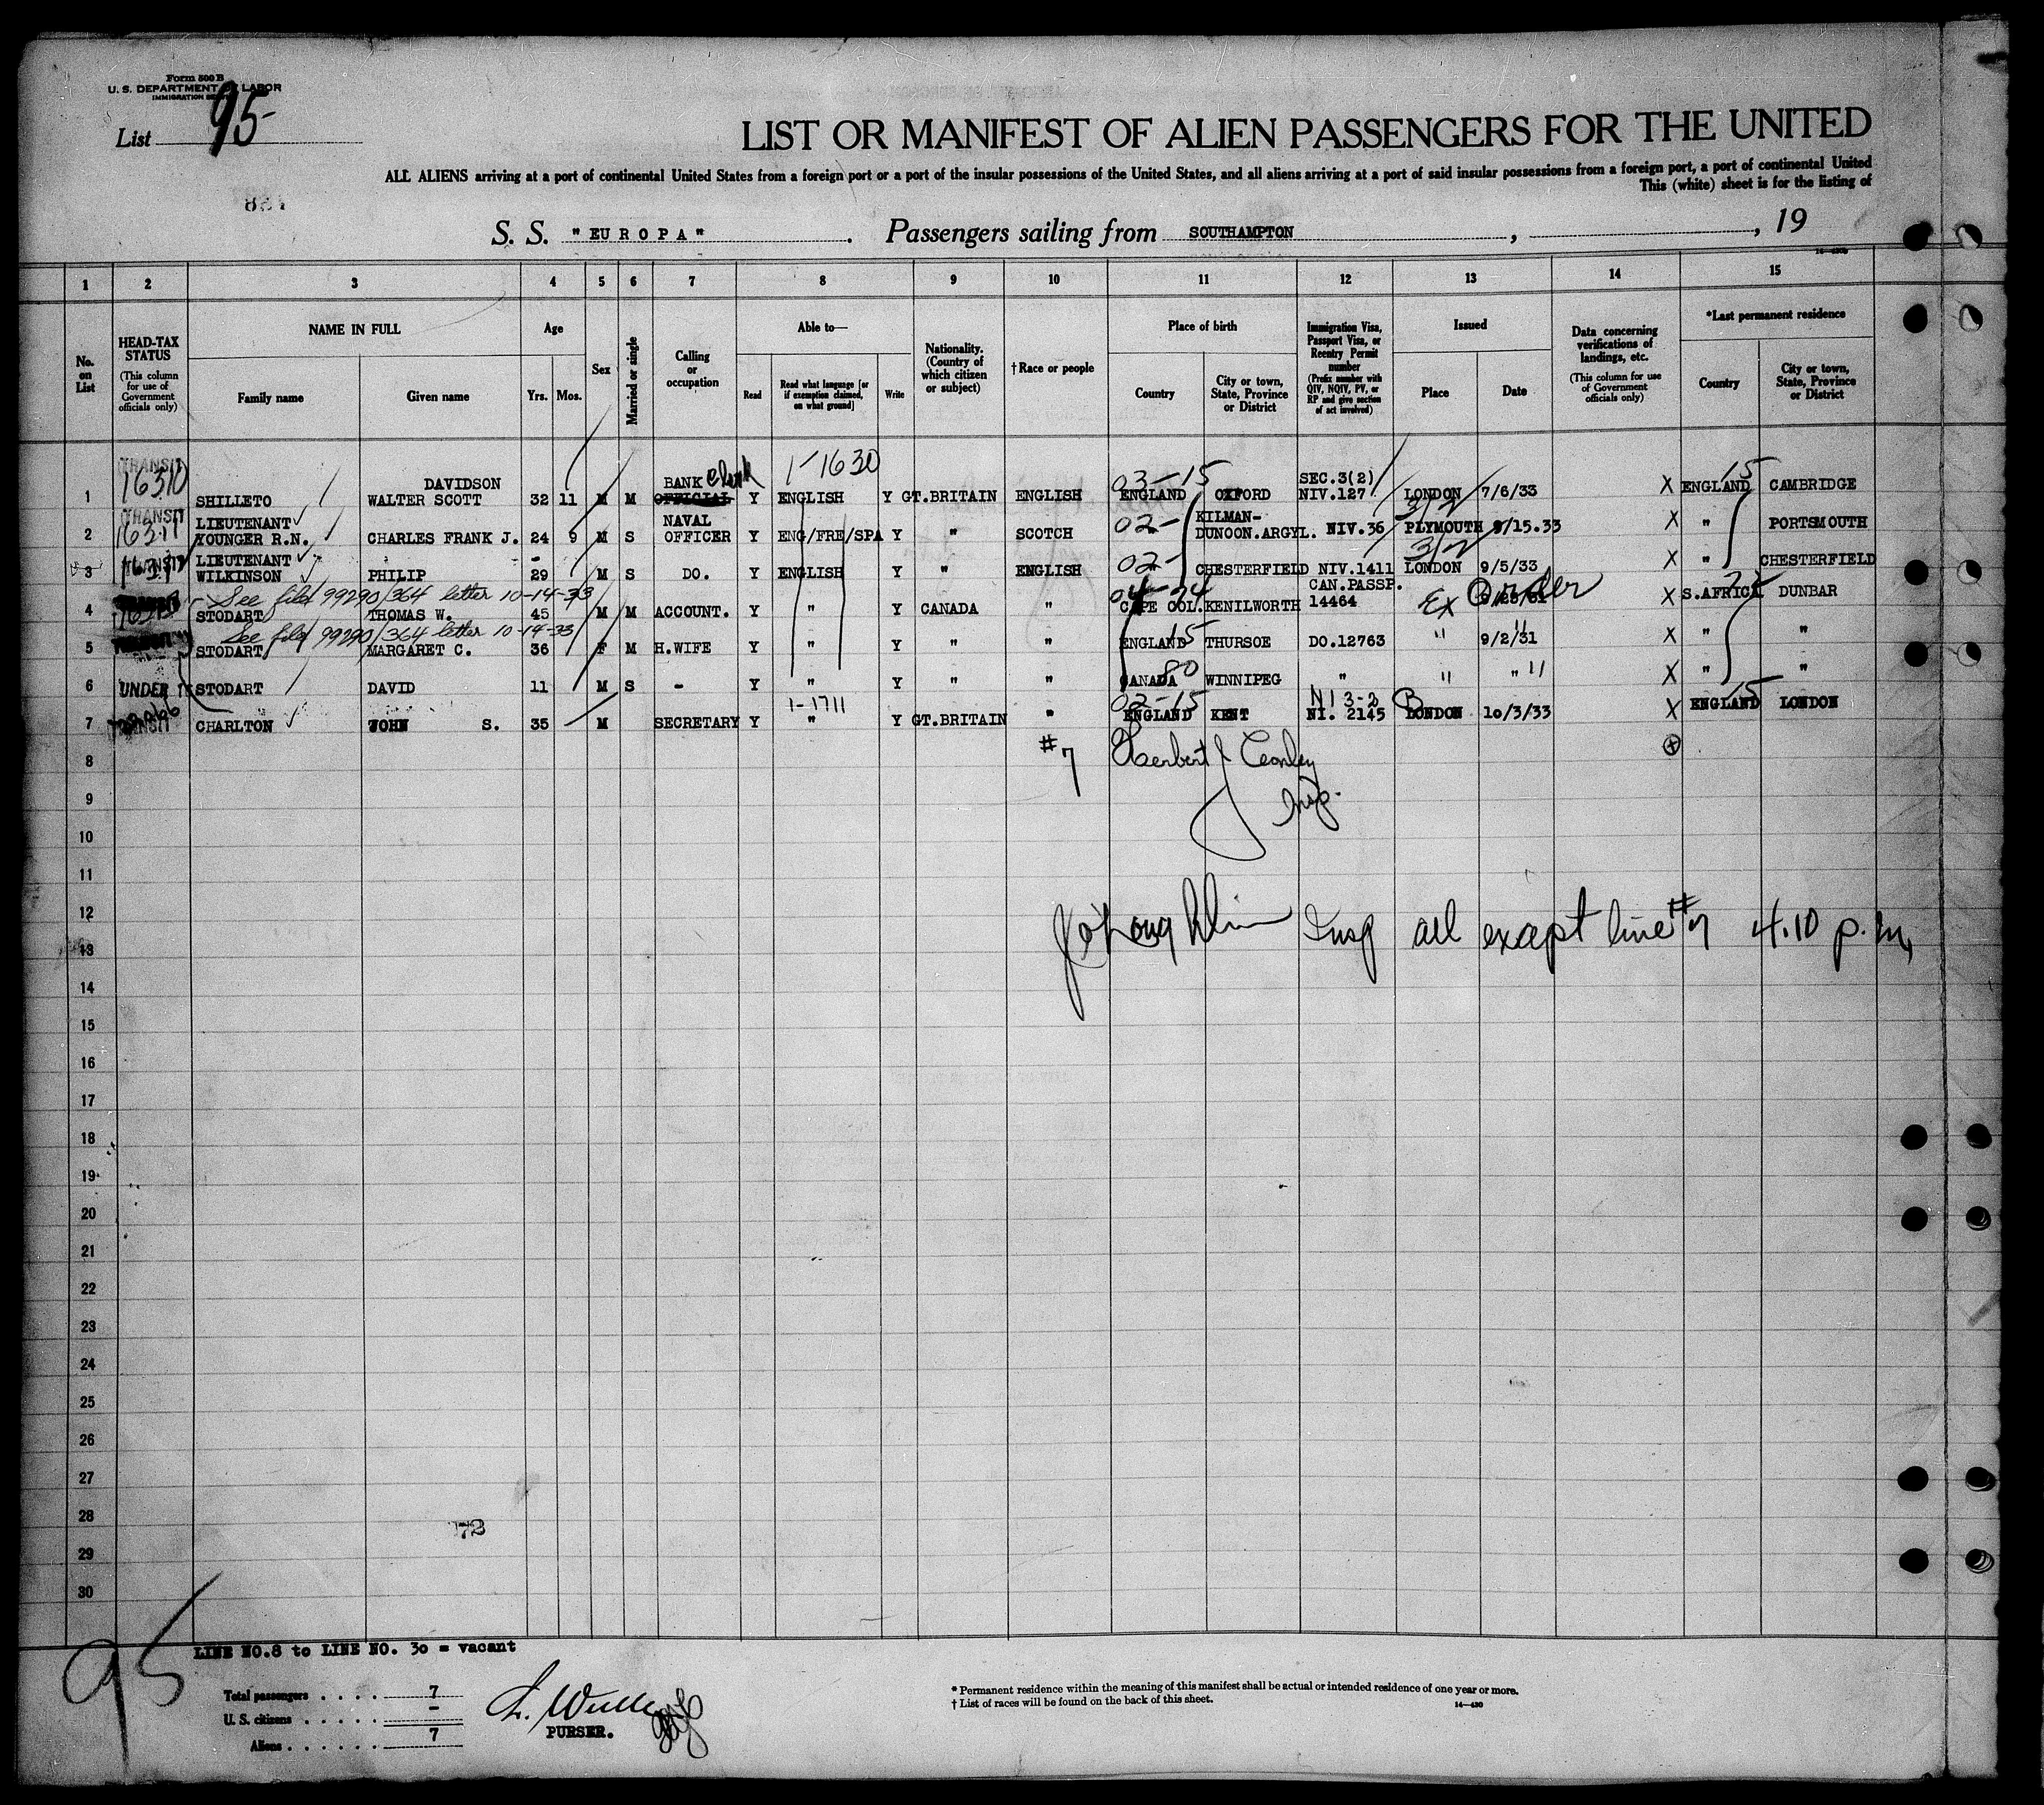 Form 500 B
U. S. DEPARTMENT OF LABOR
List 95
LIST OR MANIFEST OF ALIEN PASSENGERS FOR THE UNITED
ALL ALIENS arriving at a port of continental United States from a foreign port or a port of the insular possessions of the United States, and all aliens arriving at a port of said insular possessions from a foreign port, a port of continental United
This (white) sheet is for the listing of
S. S. "EUROPA". Passengers sailing from SOUTHAMPTON, , 19
1 2 3 4 5 6 7 8 9 10 11 12 13 14 15
No. on List
HEAD-TAX STATUS (This column for use of Government officials only)
NAME IN FULL Family name Given name
Age Yrs. Mos.
Sex
Married or single
Calling or occupation
Able to— Read Read what language [or if exemption claimed, on what ground] Write
Nationality. (Country of which citizen or subject)
†Race or people
Place of birth Country City or town, State, Province or District
Immigration Visa, Passport Visa, or Reentry Permit number (Prefix number with QIV, NQIV, PV, or RP and give section of act involved)
Issued Place Date
Data concerning verifications of landings, etc. (This column for use of Government officials only)
*Last permanent residence Country City or town, State, Province or District
TRANSIT 16310 DAVIDSON BANK clerk 1-1630 03-15 SEC.3(2) 15
1 SHILLETO WALTER SCOTT 32 11 M M OFFICIAL Y ENGLISH Y GT.BRITAIN ENGLISH ENGLAND OXFORD NIV.127 LONDON 7/6/33 X ENGLAND CAMBRIDGE
TRANSIT 16311 LIEUTENANT NAVAL 02- KILMAN- 3/2
2 YOUNGER R.N. CHARLES FRANK J. 24 9 M S OFFICER Y ENG/FRE/SPA Y " SCOTCH DUNOON.ARGYL. NIV.36 PLYMOUTH 9/15.33 X " PORTSMOUTH
LIEUTENANT - 02- 3/2
3 WILKINSON PHILIP 29 M S DO. Y ENGLISH Y " ENGLISH CHESTERFIELD NIV.1411 LONDON 9/5/33 X " CHESTERFIELD
See file 99290/364 letter 10-14-33 04-24 CAN.PASSP. Ex Order
4 STODART THOMAS W. 45 M M ACCOUNT. Y " Y CANADA " CAPE COL. KENILWORTH 14464 X S.AFRICA DUNBAR
See file 99290/364 letter 10-14-33 15
5 STODART MARGARET C. 36 F M H.WIFE Y " Y " " ENGLAND THURSOE DO.12763 " 9/2/31 X " "
6 UNDER STODART DAVID 11 M S - Y " Y " " CANADA 80 WINNIPEG " " " X " "
TRANSIT 1-1711 02-15 NI 3-2 15
7 CHARLTON JOHN S. 35 M SECRETARY Y " Y GT.BRITAIN " ENGLAND KENT NI. 2145 LONDON 10/3/33 X ENGLAND LONDON
8 #7 Herbert J Conley
9 Insp.
10
11
12
13 Insp all except line #7 4.10 p.m,
14
15
16
17
18
19
20
21
22
23
24
25
26
27
28
72
29
30
95
LINE NO.8 to LINE NO. 30 = vacant
Total passengers . . . . 7
U. S. citizens . . . . . -
Aliens . . . . . . 7
PURSER.
* Permanent residence within the meaning of this manifest shall be actual or intended residence of one year or more.
† List of races will be found on the back of this sheet.
14—430